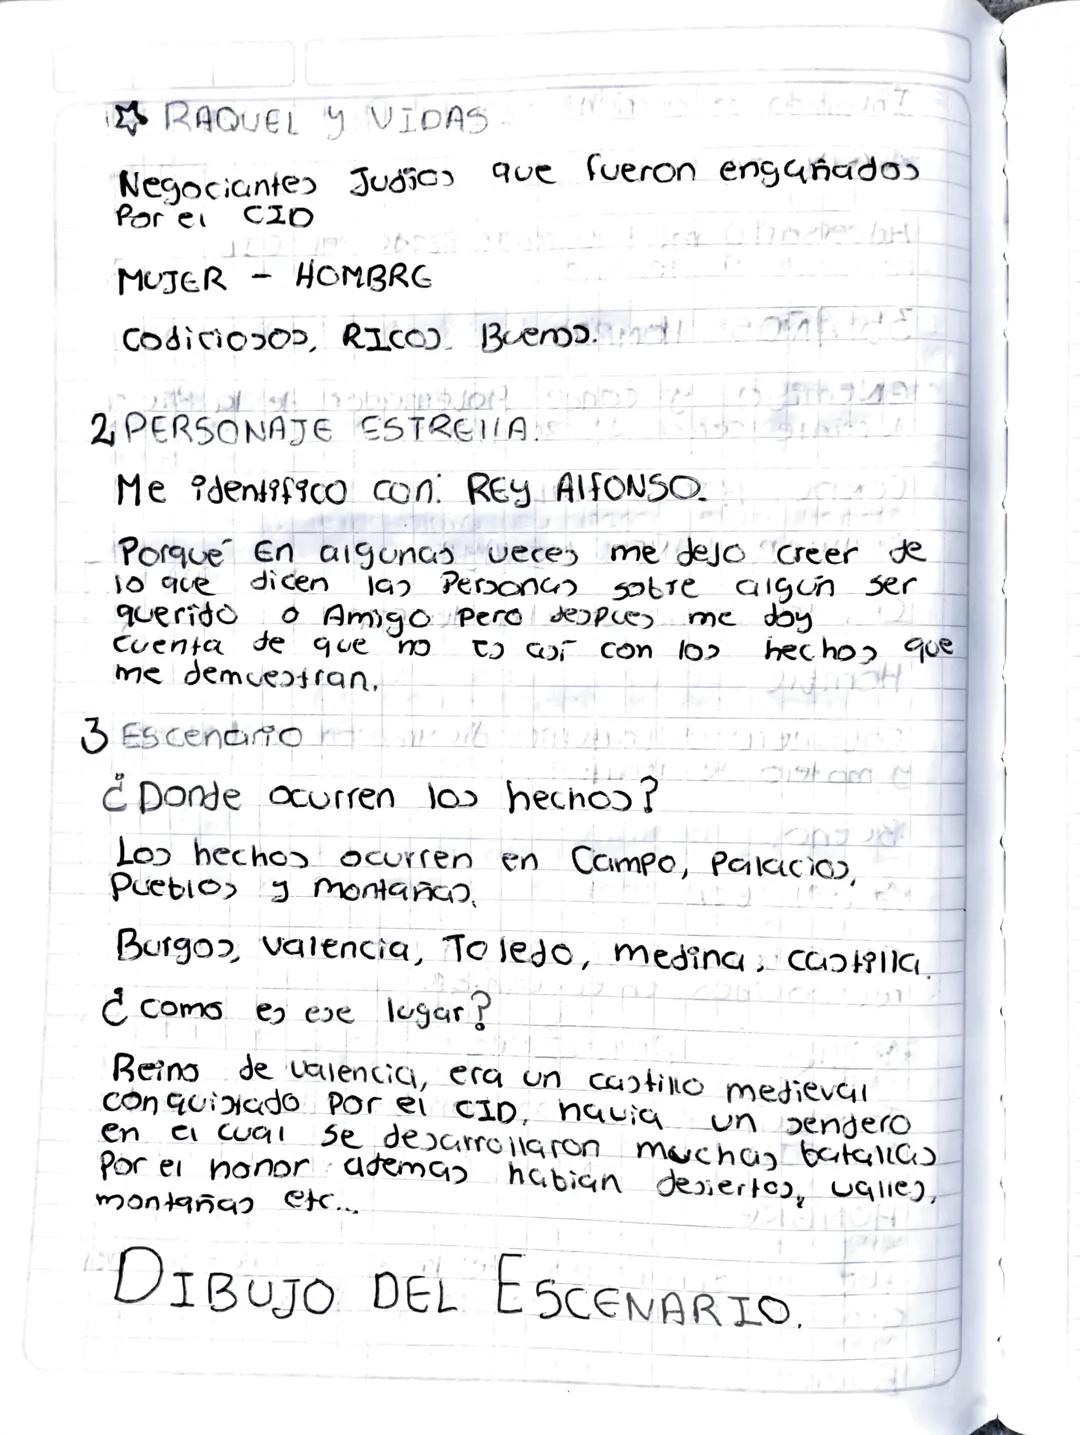 ☆ RAQUEL y VIDAS
Negociantes Judios que fueron engañados
Por el CID
MUJER - HOMBRE
Codiciosos, RICOS. Buenos.
2, PERSONAJE ESTRElIA.
Me identifico con: REY AlfONSO.
Porque En algunas veces me dejo creer de
lo que dicen las Personas sobre algún ser
querido o Amigo Pero despues me doy
cuenta de que no es así con los hechos que
me demuestran.
3 Escenario
¿Donde ocurren los hechos?
Los hechos ocurren en Campo, Palacios,
Pueblos y montañas.
Burgos, valencia, Toledo, medina, castilla.
¿como es ese lugar?
Reino de valencia, era un castillo medieval
conquistado Por el CID, havia un sendero
en el cual se desarrollaron muchas batallas
Por el honor ademas habian desiertos, valles,
montañas etc...
DIBUJO DEL ESCENARIO.